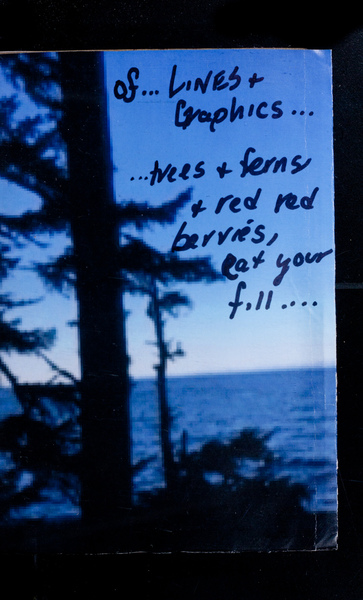 of... LINES +
Graphics...
...trees + ferns
+ red red
berries,
eat your
fill....